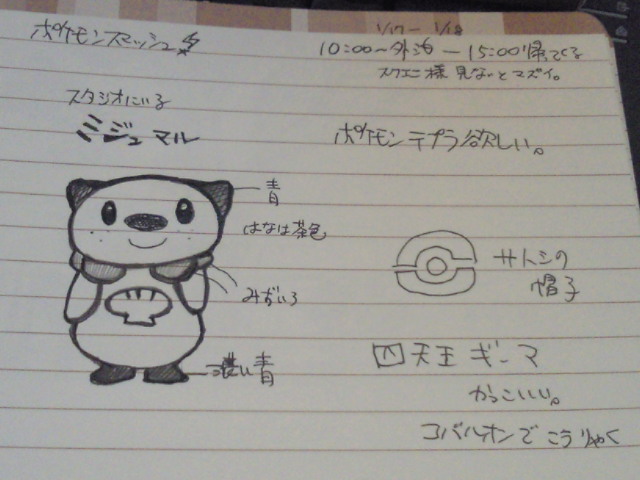 ポケモンスマッシュ
1/17 〜 1/18
10:00〜外泊 — 15:00帰ってくる
スクエニ様 見ないとマズイ。
スタジオにいる
ミジュマル
青
はなは茶色
みずいろ
濃い青
ポケモンテプラ欲しい。
サトシの
帽子
四天王 ギーマ
かっこいい。
コバルオンで こうりゃく